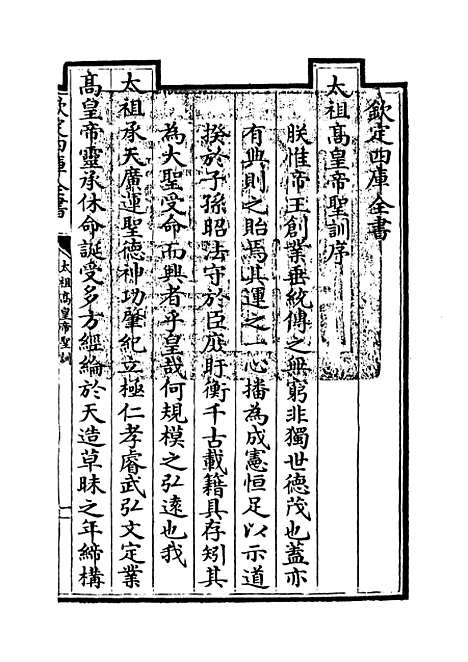 欽定四庫全書
太祖高皇帝聖訓序
朕惟帝王創業垂統傳之無窮非獨世德茂也蓋亦
有典則之貽焉其運之一心播為成憲恒足以示道
揆於子孫昭法守於臣庶盱衡千古載籍具存矧其
為大聖受命而興者乎皇哉何規模之弘遠也我
太祖承天廣運聖德神功肇紀立極仁孝睿武弘文定業
高皇帝靈承休命誕受多方經綸於天造草昧之年締構
欽定四庫全書
太祖高皇帝聖訓
一